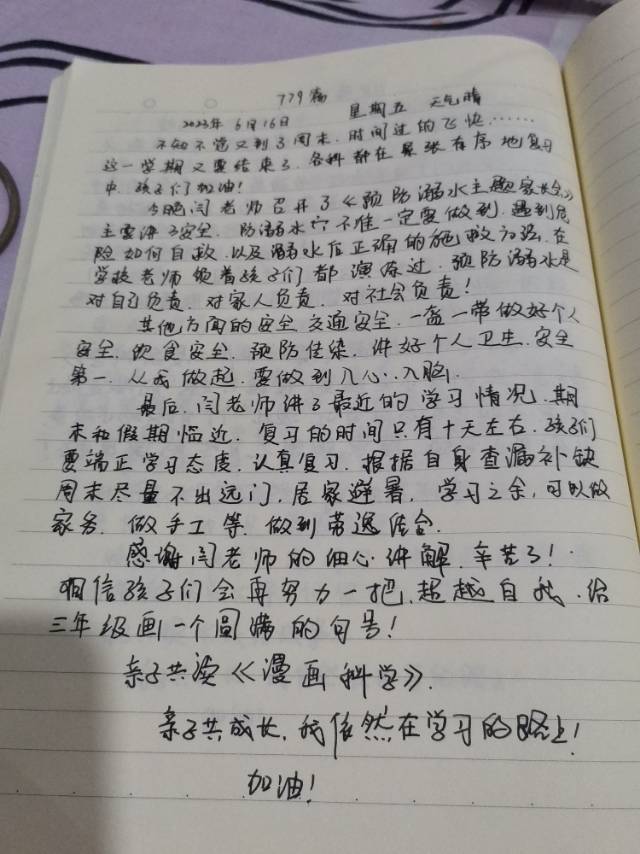 779篇
2023年 6月16日 星期五 天气晴
不知不觉又到了周末，时间过的飞快……
这一学期又要结束了，各科都在紧张有序地复习
中，孩子们加油！
今晚闫老师召开了《预防溺水主题家长会》
主要讲了安全，防溺水六不准一定要做到，遇到危
险如何自救，以及溺水后正确的施救方法，在
学校老师领着孩子们都演练过，预防溺水是
对自己负责，对家人负责，对社会负责！
其他方面的安全，交通安全，一盔一带做好个人
安全，饮食安全，预防传染，讲好个人卫生，安全
第一，从我做起，要做到入心，入脑，
最后，闫老师讲了最近的学习情况，期
末和假期临近，复习的时间只有十天左右，孩子们
要端正学习态度，认真复习，根据自身查漏补缺
周末尽量不出远门，居家避暑，学习之余，可以做
家务，做手工等，做到劳逸结合．
感谢闫老师的细心讲解，辛苦了！
相信孩子们会再努力一把，超越自我，给
三年级画一个圆满的句号！
亲子共读《漫画科学》．
亲子共成长，我依然在学习的路上！
加油！